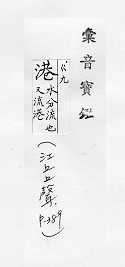 彙音寶
巜九
港
水分流也
又流港
(江上上聲
P.389)